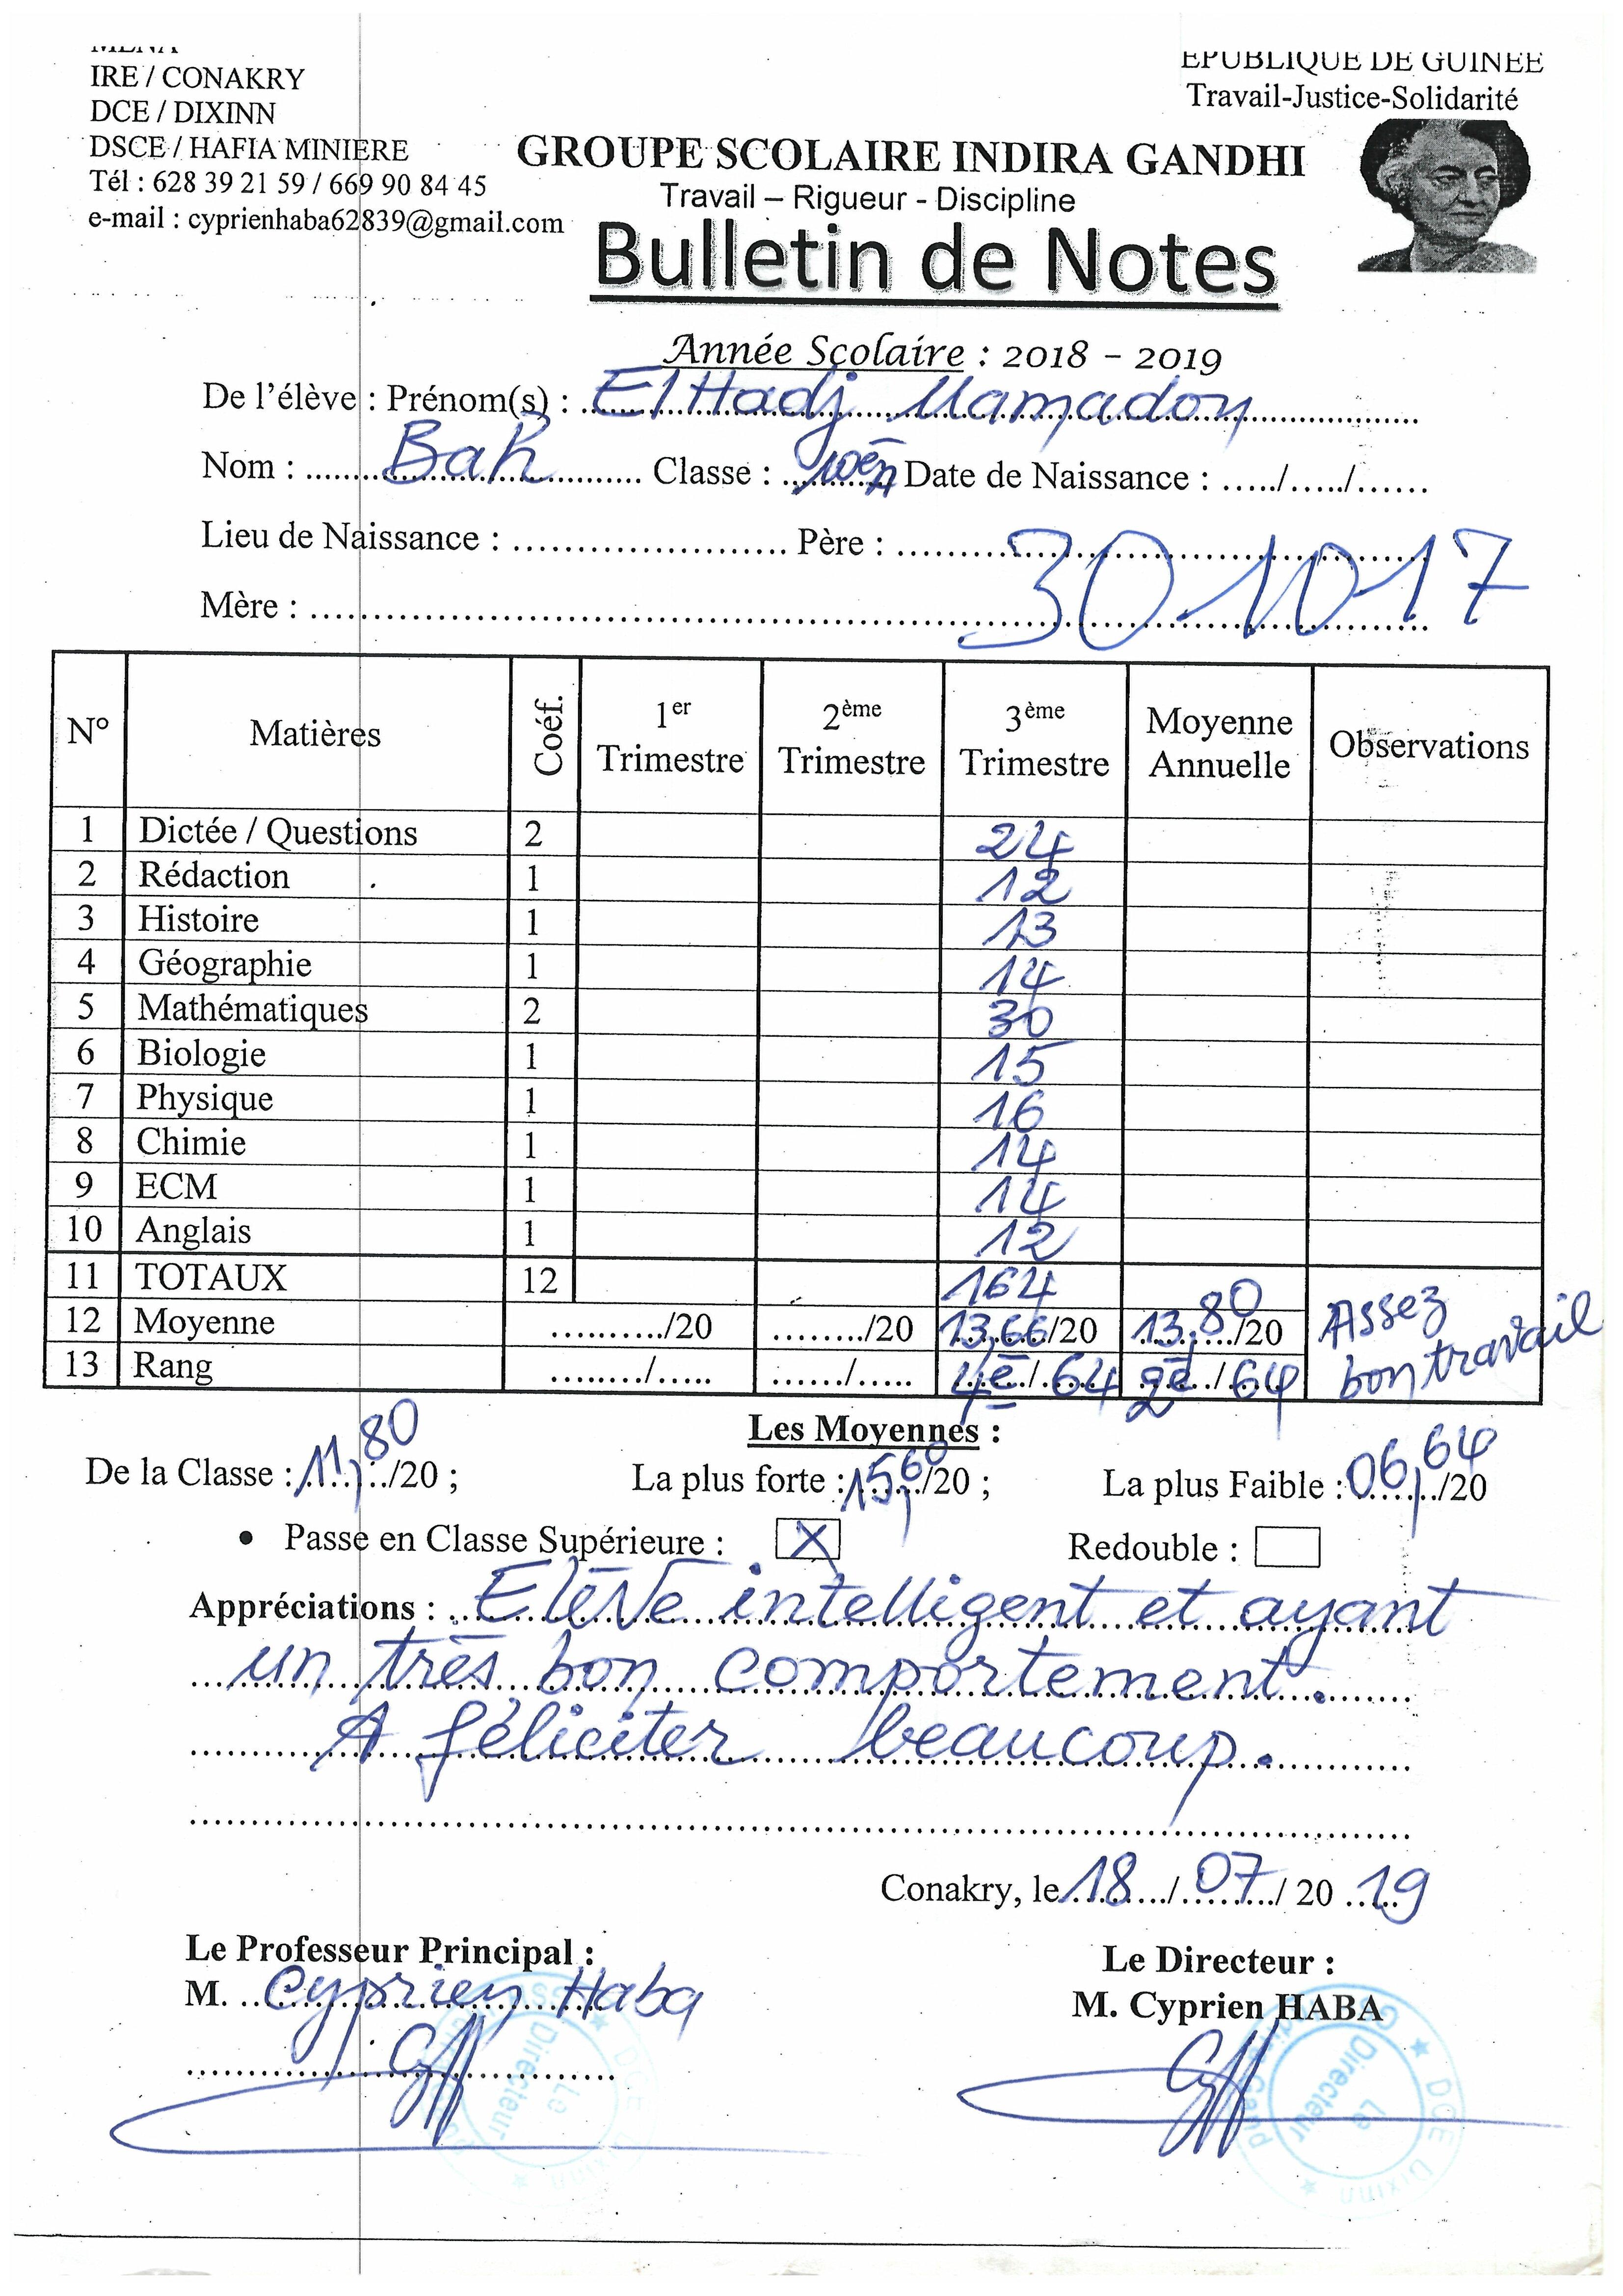 IRE / CONAKRY
DCE / DIXINN
DSCE / HAFIA MINIERE
Tél : 628 39 21 59 / 669 90 84 45
e-mail : cyprienhaba62839@gmail.com
EPUBLIQUE DE GUINEE
Travail-Justice-Solidarité
GROUPE SCOLAIRE INDIRA GANDHI
Travail – Rigueur - Discipline
Bulletin de Notes
Année Scolaire : 2018 - 2019
De l'élève : Prénom(s) : ElHadj Mamadou
Nom : Bah Classe : 10èm Date de Naissance : ...../...../......
Lieu de Naissance : ...................... Père : ......................
Mère : ......................
30-10-17
N° Matières Coéf. 1er Trimestre 2ème Trimestre 3ème Trimestre Moyenne Annuelle Observations
1 Dictée / Questions 2 24
2 Rédaction 1 12
3 Histoire 1 13
4 Géographie 1 14
5 Mathématiques 2 30
6 Biologie 1 15
7 Physique 1 16
8 Chimie 1 14
9 ECM 1 14
10 Anglais 1 12
11 TOTAUX 12 164
12 Moyenne ........../20 ......../20 13,66/20 13,80/20 Assez
13 Rang ......../..... ....../..... 4è/64 2è/64 bon travail
Les Moyennes :
De la Classe : 11,80/20 ; La plus forte : 15,60/20 ; La plus Faible : 06,64/20
• Passe en Classe Supérieure : X Redouble :
Appréciations : Elève intelligent et ayant
un très bon comportement.
A féliciter beaucoup.
Conakry, le 18/07/2019
Le Professeur Principal :
M. Cyprien Haba
Le Directeur :
M. Cyprien HABA
Le Directeur
DCE Dixinn
Le Directeur
DCE Dixinn